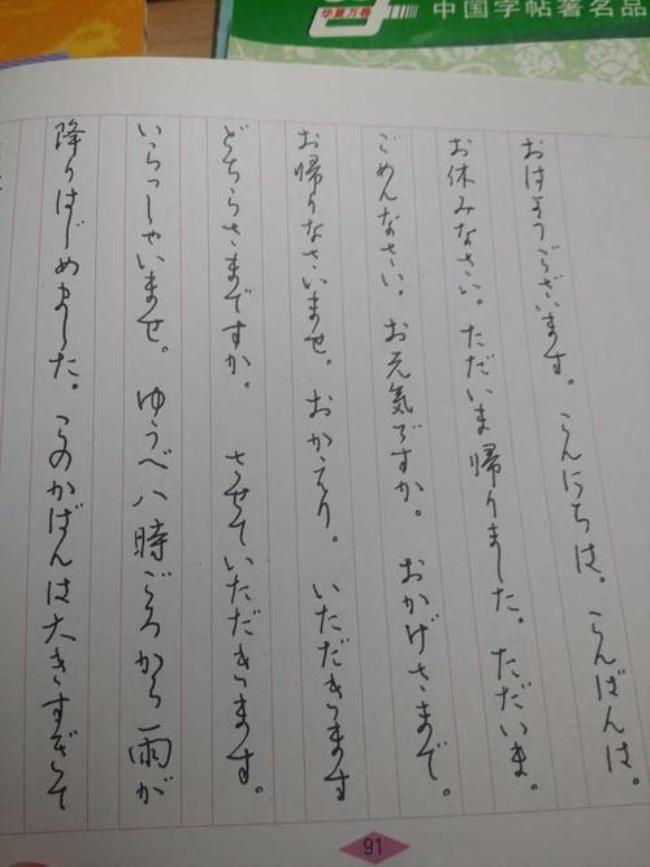 华夏万卷
中国字帖著名品
おはようございます。こんにちは。こんばんは。
お休みなさい。ただいま帰りました。ただいま。
ごめんなさい。お元気ですか。おかげさまで。
お帰りなさいませ。おかえり。いただきます
どちらさまですか。させていただきます。
いらっしゃいませ。ゆうべ八時ごろから雨が
降りはじめました。このかばんは大きすぎて
91